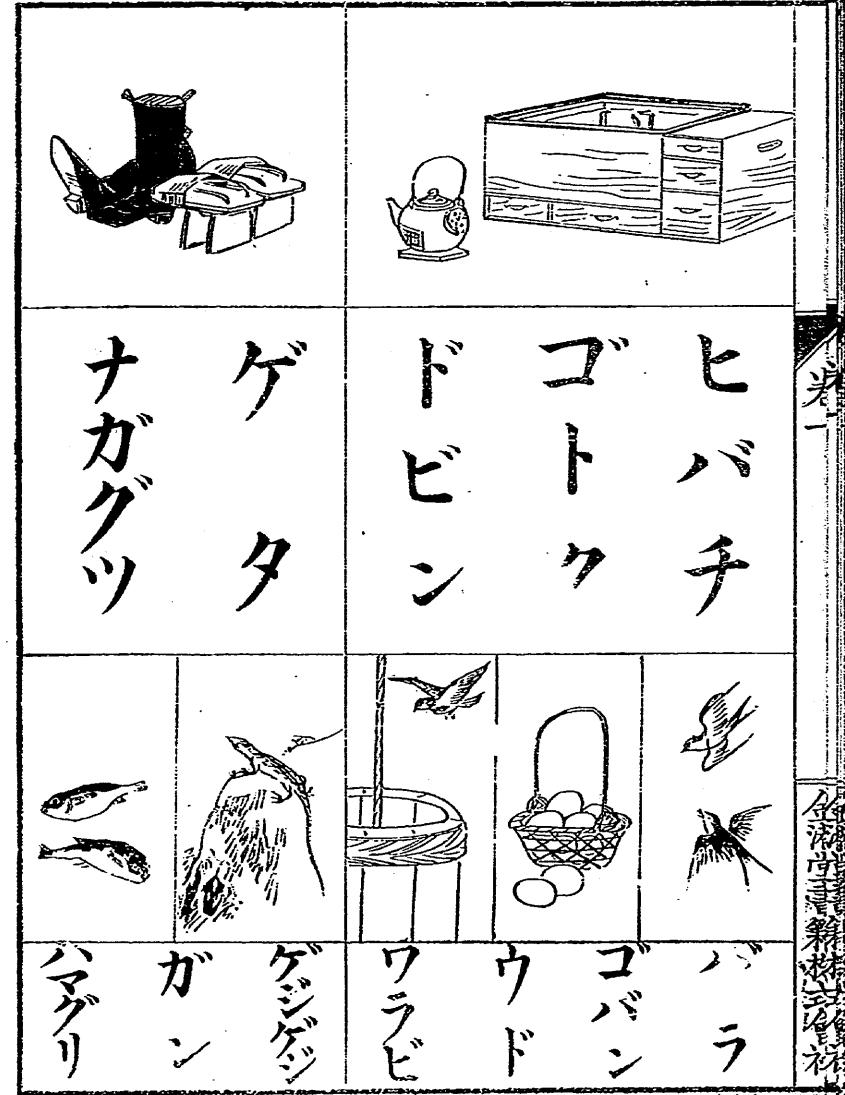 ヒバチ
ゴトク
ドビン
ゲタ
ナガグツ
バラ
ゴバン
ウド
ワラビ
ゲジゲジ
ガン
ハマグリ
卷一
金港堂書籍株式會社